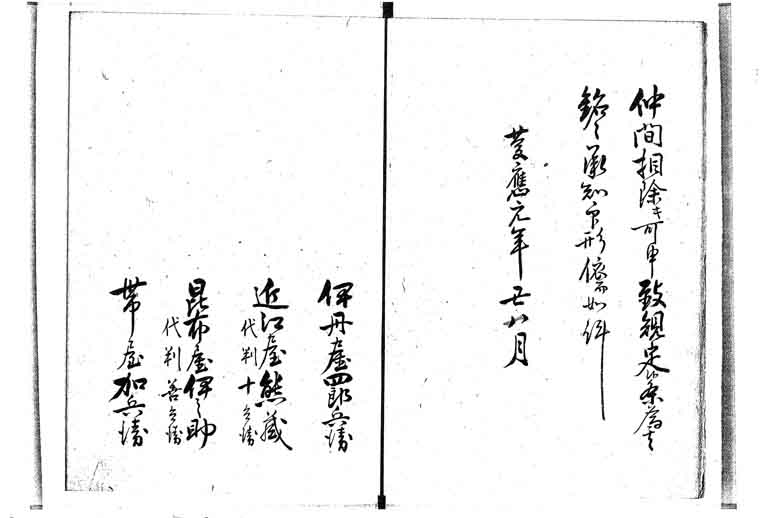 仲間相除キ可申致規定候条為之
銘々承知印形依而如件
慶應元年丑八月
伊丹屋四郎兵衛
近江屋熊蔵
代判十兵衛
昆布屋伊之助
代判善兵衛
帯屋加兵衛